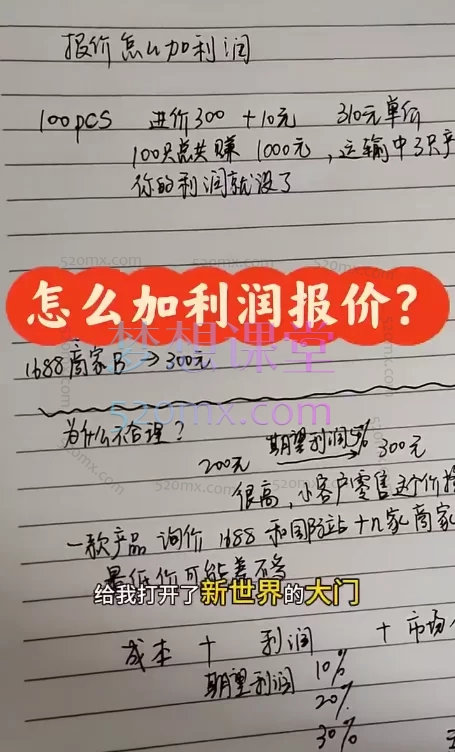 报价怎么加利润
100pcs 进价300 +10元 310元单价
100只总共赚1000元,运输中3只产
你的利润就没了
怎么加利润报价?
梦想课堂
520mx.com
1688商家B → 300元
为什么不合理?
200元 期望利润5% 300元
很高,小客户零售这个价
一款产品 询价 1688 和国际站 十几家商家
最低价可能差不多
给我打开了新世界的大门
成本 + 利润 + 市场
期望利润 10%
20%
30%